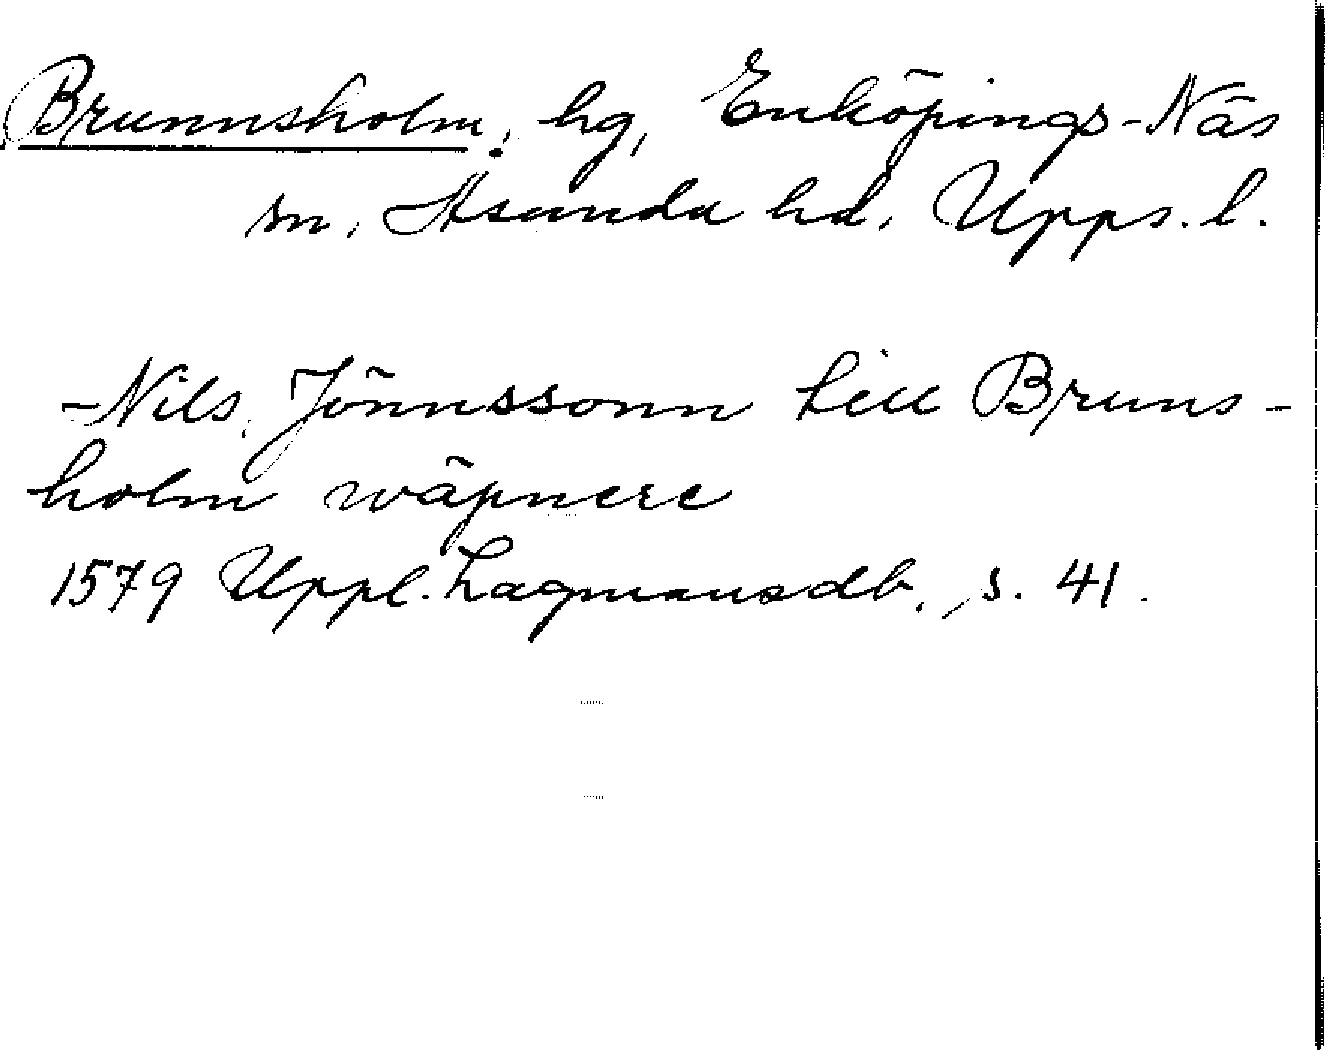 Brunnsholm, hg, Enköpings-Näs
sn, Åsunda hd, Upps. l.
-Nils Jönnssonn till Bruns-
holm wäpnere
1579 Uppl. Lagmansdb. s. 41.